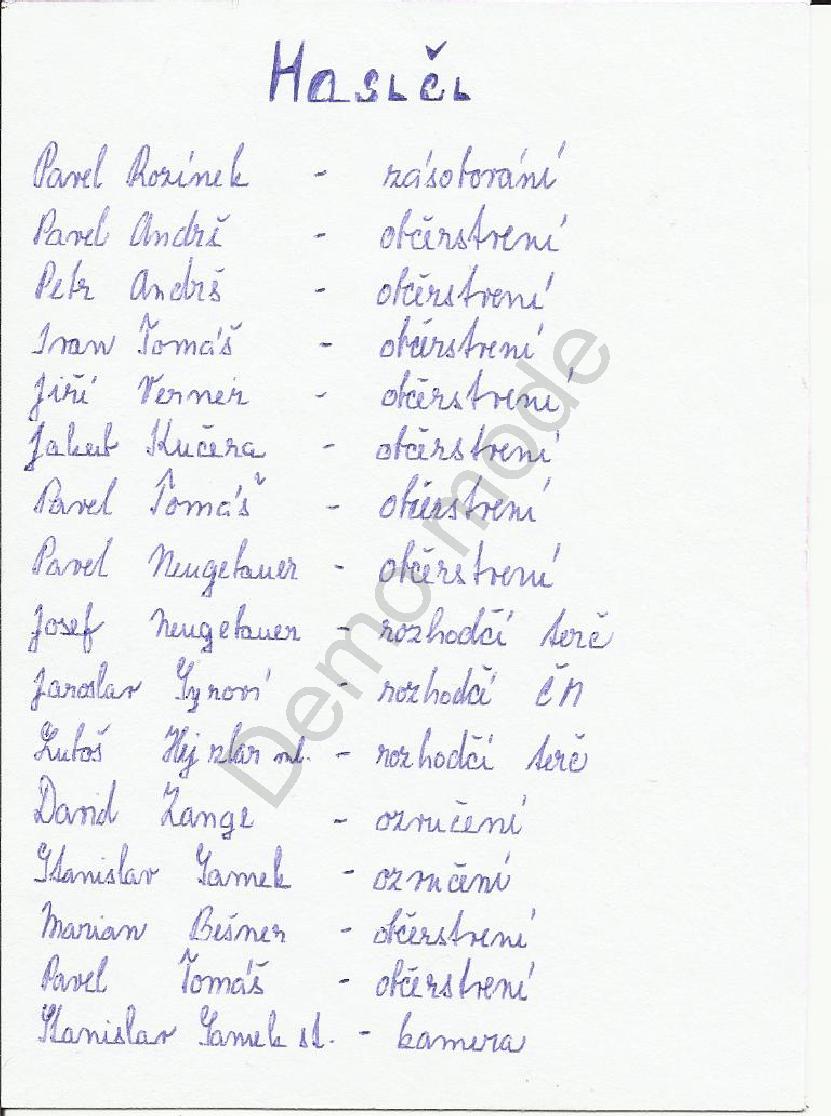 Hasiči
Pavel Rozínek - zásobování
Pavel Andrš - občerstvení
Petr Andrš - občerstvení
Ivan Tomáš - občerstvení
Jiří Verner - občerstvení
Jakub Kučera - občerstvení
Pavel Tomáš - občerstvení
Pavel Neugebauer - občerstvení
Josef Neugebauer - rozhodčí terč
Jaroslav Synovi - rozhodčí ČN
Luboš Hejzlar ml. - rozhodčí terč
David Lange - ozvučení
Stanislav Samek - ozvučení
Marian Bešner - občerstvení
Pavel Tomáš - občerstvení
Stanislav Samek st. - kamera
Demo mode